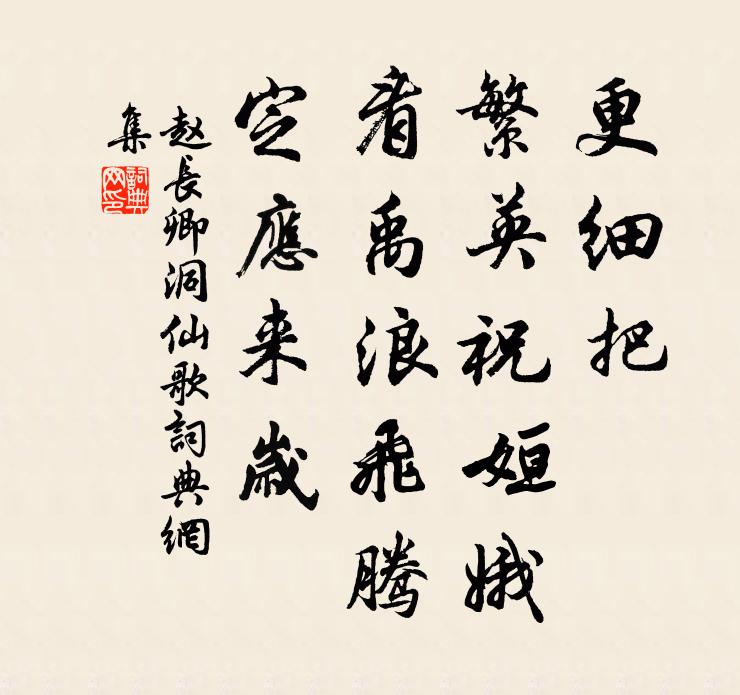 更细把
繁英祝姮娥
看禹浪飛騰
定應来歲
赵長卿洞仙歌詞典網
集
詞典网印